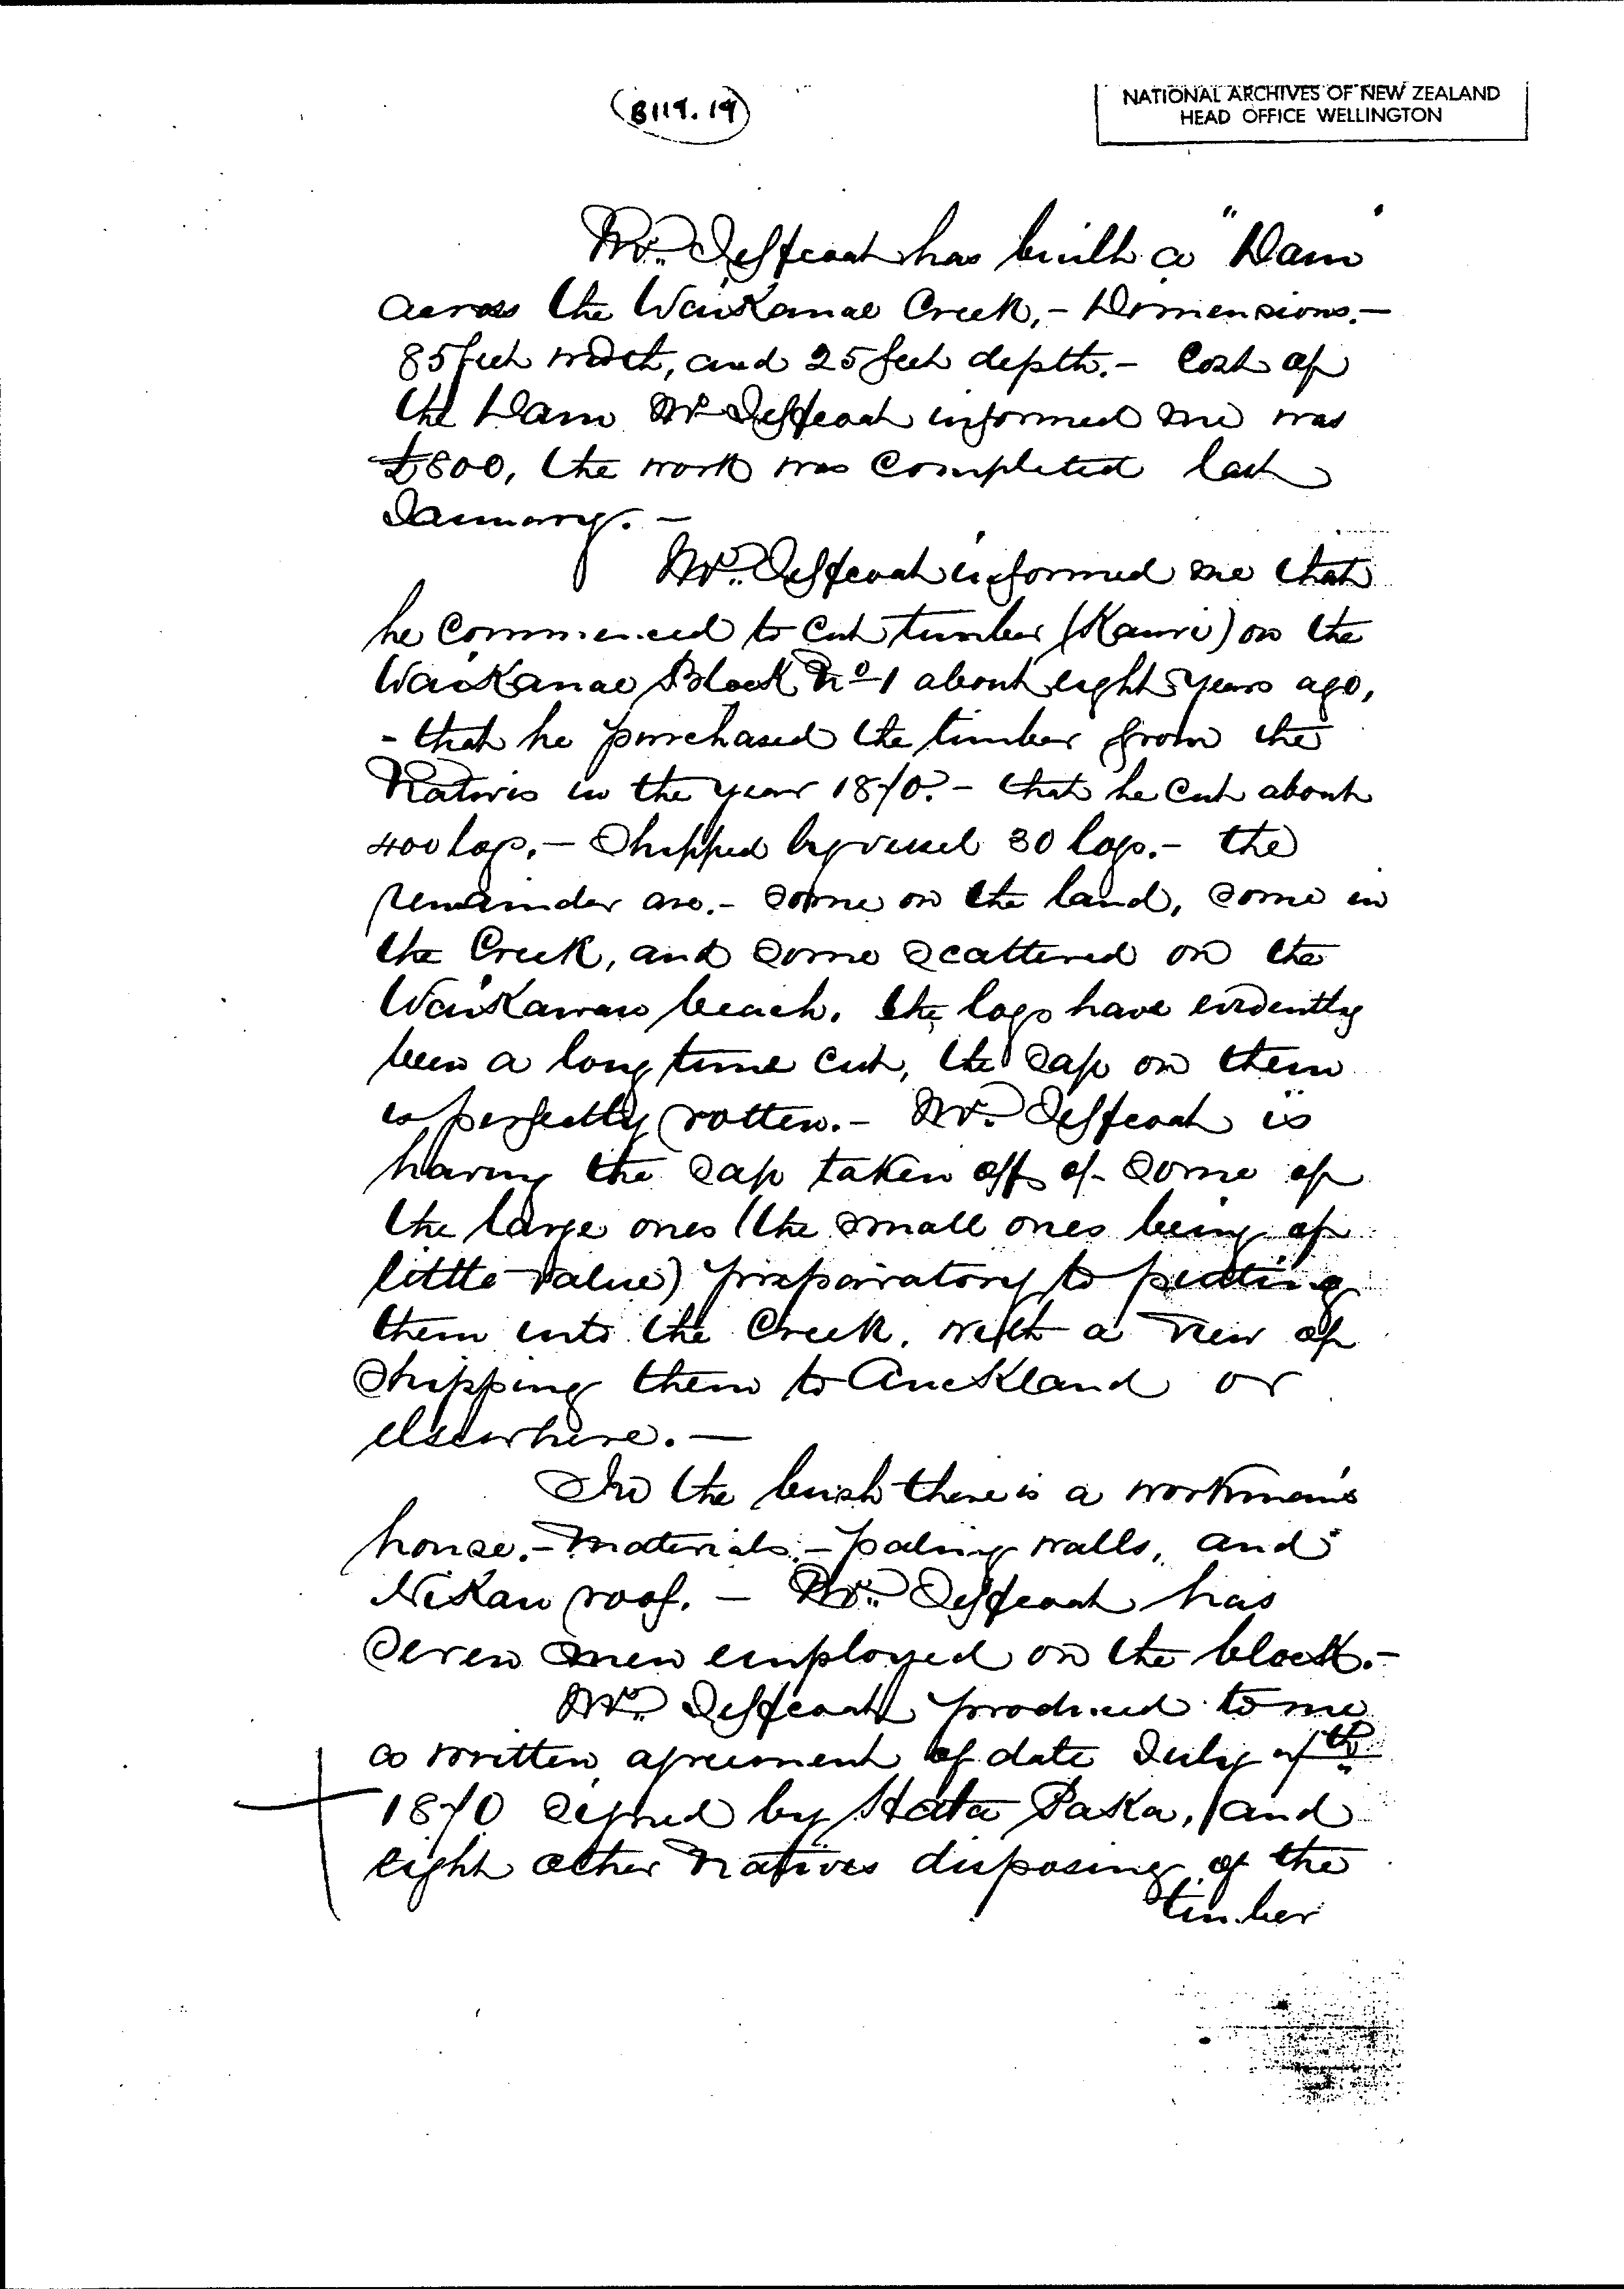 (B119.19)
NATIONAL ARCHIVES OF NEW ZEALAND
HEAD OFFICE WELLINGTON
Mr. Jeffcoat has built a "Dam"
across the Waikanae Creek,- Dimensions.-
85 feet width, and 25 feet depth.- Cost of
the Dam Mr Jeffcoat informed me was
£800, the work was completed last
January.-
Mr. Jeffcoat informed me that
he commenced to cut timber (Kauri) on the
Waikanae Block No 1 about eight years ago,
- that he purchased the timber from the
Natives in the year 1870.- that he cut about
400 logs.- Shipped by vessel 30 logs.- the
remainder are.- some on the land, some in
the Creek, and some scattered on the
Waikawau beach. The logs have evidently
been a long time cut, the sap on them
is perfectly rotten.- Mr. Jeffcoat is
having the sap taken off of some of
the large ones (the small ones being of
little value) preparatory to putting
them into the Creek, with a view of
shipping them to Auckland or
elsewhere.-
In the bush there is a workman's
house.- Materials.- paling walls, and
Nikau roof. - Mr. Jeffcoat has
seven men employed on the block.-
Mr. Jeffcoat produced to me
a written agreement of date July 7th
1870 signed by Hata Paka, and
eight other Natives disposing of the
timber